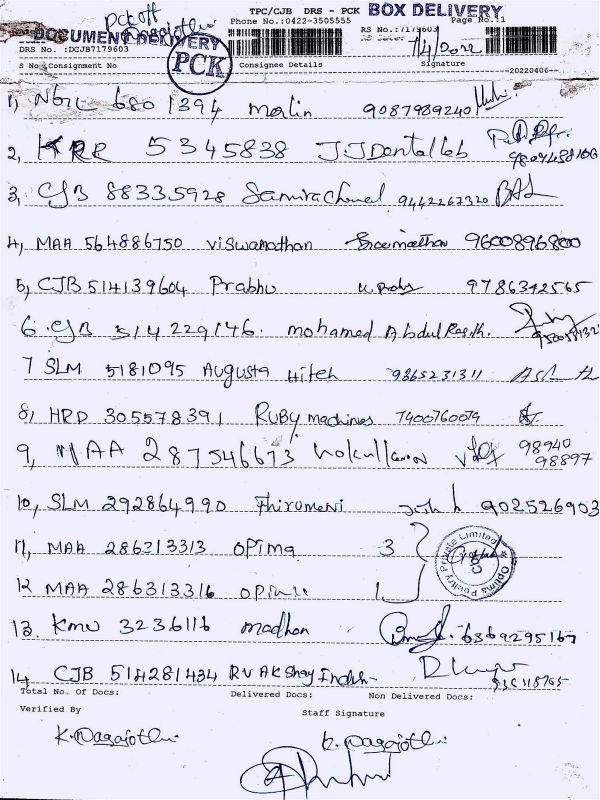 TPC/CJB DRS - PCK BOX DELIVERY
Pck off Phone No.:0422-3505555 Page No.:1
Nagajothi
DOCUMENT DELIVERY RS No.:7179603
DRS No. :DCJB7179603 7/4/2022
PCK
S No Consignment No Consignee Details Signature --20220406--
1, 680 1394 merlin 9087989240
2, KRR 5345838 J.J Dental lab
3, CJB 88335928 9442267320
4, MAA 564886750 viswanathan 9600896800
5, CJB 514139604 Prabhu 9786342565
6. CJB 514229146. mohamed Abdul
7 SLM 5181095 Augusta Hitech 9865231311
8, HRD 305578391 RUBY machines 7400760079
9, MAA 287546673 98940
98897
10, SLM 292864990 Thirumeni 902526903
11, MAA 286313313 opima 3
Optima Poultry Private Limited
12 MAA 286313316 1
13. KMU 3236116 madhan 6369295167
14 CJB 514281434 RV AKshay
Total No. Of Docs: Delivered Docs: Non Delivered Docs:
Verified By Staff Signature
K. Nagajothi K. Nagajothi